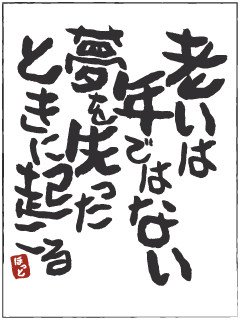 老いは
年ではない
夢を失った
ときに起こる
ほっと